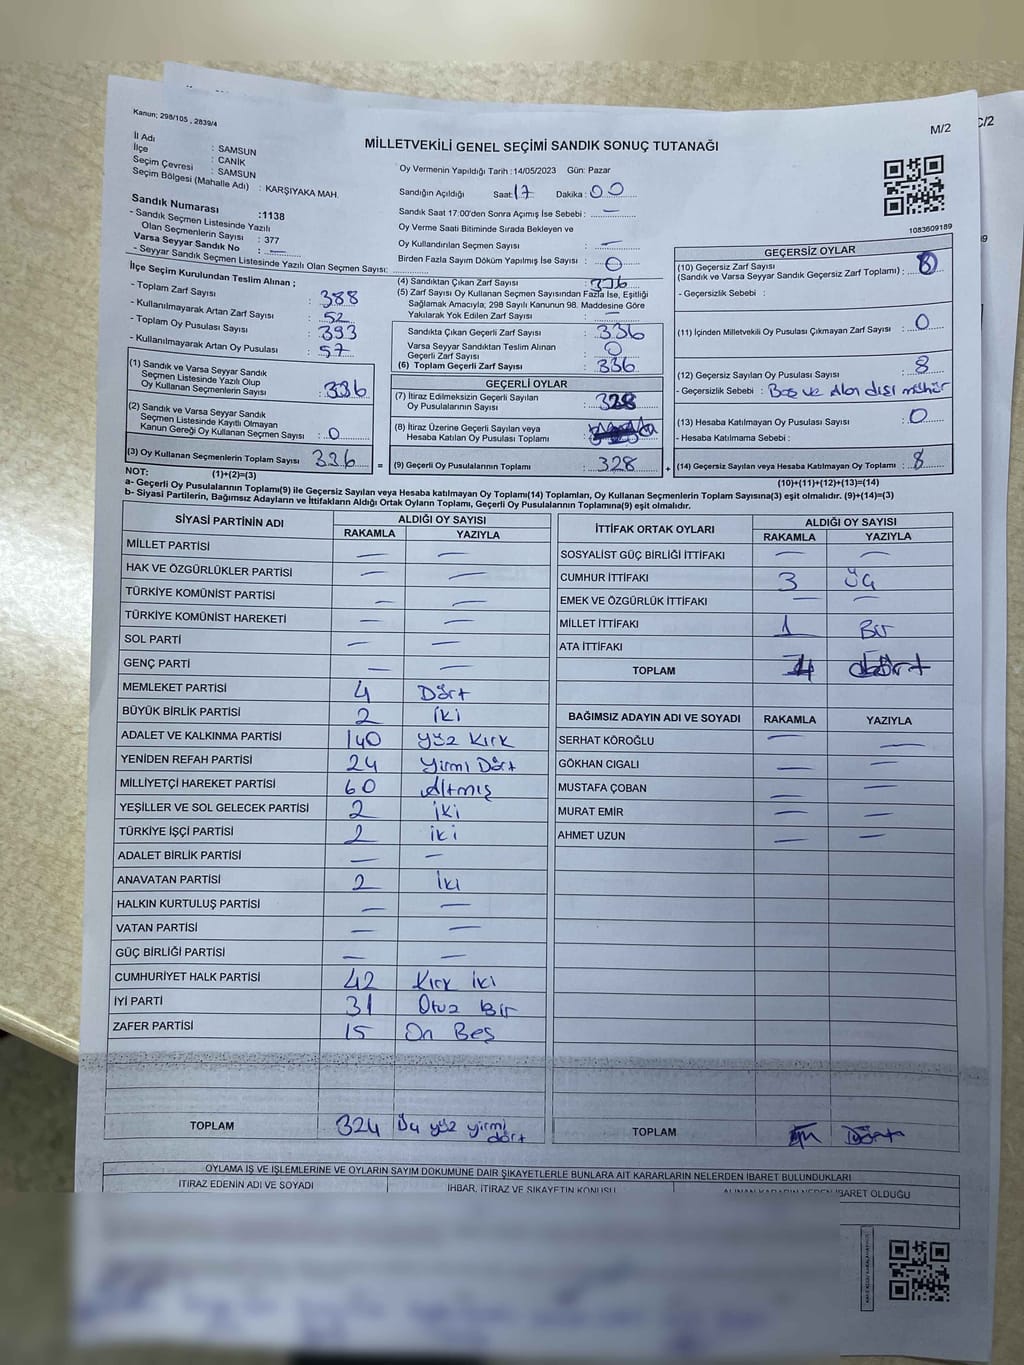 Kanun; 298/105 , 2839/4
M/2
C/2
MİLLETVEKİLİ GENEL SEÇİMİ SANDIK SONUÇ TUTANAĞI
İl Adı : SAMSUN
İlçe : CANİK
Seçim Çevresi : SAMSUN
Seçim Bölgesi (Mahalle Adı) : KARŞIYAKA MAH.
Sandık Numarası :1138
- Sandık Seçmen Listesinde Yazılı
Olan Seçmenlerin Sayısı : 377
Varsa Seyyar Sandık No : —
- Seyyar Sandık Seçmen Listesinde Yazılı Olan Seçmen Sayısı:
İlçe Seçim Kurulundan Teslim Alınan ;
- Toplam Zarf Sayısı : 388
- Kullanılmayarak Artan Zarf Sayısı : 52
- Toplam Oy Pusulası Sayısı : 393
- Kullanılmayarak Artan Oy Pusulası : 57
(1) Sandık ve Varsa Seyyar Sandık
Seçmen Listesinde Yazılı Olup
Oy Kullanan Seçmenlerin Sayısı : 336
(2) Sandık ve Varsa Seyyar Sandık
Seçmen Listesinde Kayıtlı Olmayan
Kanun Gereği Oy Kullanan Seçmen Sayısı : 0
(3) Oy Kullanan Seçmenlerin Toplam Sayısı 336 =
Oy Vermenin Yapıldığı Tarih :14/05/2023 Gün: Pazar
Sandığın Açıldığı Saat: 17 Dakika : 00
Sandık Saat 17:00'den Sonra Açımış İse Sebebi : —
Oy Verme Saati Bitiminde Sırada Bekleyen ve
Oy Kullandırılan Seçmen Sayısı : —
Birden Fazla Sayım Döküm Yapılmış İse Sayısı : 0
(4) Sandıktan Çıkan Zarf Sayısı : 336
(5) Zarf Sayısı Oy Kullanan Seçmen Sayısından Fazla İse, Eşitliği
Sağlamak Amacıyla; 298 Sayılı Kanunun 98. Maddesine Göre
Yakılarak Yok Edilen Zarf Sayısı : —
Sandıkta Çıkan Geçerli Zarf Sayısı : 336
Varsa Seyyar Sandıktan Teslim Alınan
Geçerli Zarf Sayısı : 0
(6) Toplam Geçerli Zarf Sayısı : 336
GEÇERLİ OYLAR
(7) İtiraz Edilmeksizin Geçerli Sayılan
Oy Pusulalarının Sayısı : 328
(8) İtiraz Üzerine Geçerli Sayılan veya
Hesaba Katılan Oy Pusulası Toplamı :
(9) Geçerli Oy Pusulalarının Toplamı : 328 +
1083609189
GEÇERSİZ OYLAR
(10) Geçersiz Zarf Sayısı
(Sandık ve Varsa Seyyar Sandık Geçersiz Zarf Toplamı) :
- Geçersizlik Sebebi :
(11) İçinden Milletvekili Oy Pusulası Çıkmayan Zarf Sayısı : 0
(12) Geçersiz Sayılan Oy Pusulası Sayısı : 8
- Geçersizlik Sebebi : Boş ve Alan dışı mühür
(13) Hesaba Katılmayan Oy Pusulası Sayısı : 0
- Hesaba Katılmama Sebebi :
(14) Geçersiz Sayılan veya Hesaba Katılmayan Oy Toplamı : 8
NOT: (1)+(2)=(3) (10)+(11)+(12)+(13)=(14)
a- Geçerli Oy Pusulalarının Toplamı(9) ile Geçersiz Sayılan veya Hesaba Katılmayan Oy Toplamı(14) Toplamları, Oy Kullanan Seçmenlerin Toplam Sayısına(3) eşit olmalıdır. (9)+(14)=(3)
b- Siyasi Partilerin, Bağımsız Adayların ve İttifakların Aldığı Ortak Oyların Toplamı, Geçerli Oy Pusulalarının Toplamına(9) eşit olmalıdır.
SİYASİ PARTİNİN ADI ALDIĞI OY SAYISI
RAKAMLA YAZIYLA
MİLLET PARTİSİ — —
HAK VE ÖZGÜRLÜKLER PARTİSİ — —
TÜRKİYE KOMÜNİST PARTİSİ — —
TÜRKİYE KOMÜNİST HAREKETİ — —
SOL PARTİ — —
GENÇ PARTİ — —
MEMLEKET PARTİSİ 4 Dört
BÜYÜK BİRLİK PARTİSİ 2 İki
ADALET VE KALKINMA PARTİSİ 140 yüz Kırk
YENİDEN REFAH PARTİSİ 24 Yirmi Dört
MİLLİYETÇİ HAREKET PARTİSİ 60 Altmış
YEŞİLLER VE SOL GELECEK PARTİSİ 2 iki
TÜRKİYE İŞÇİ PARTİSİ 2 iki
ADALET BİRLİK PARTİSİ — —
ANAVATAN PARTİSİ 2 İki
HALKIN KURTULUŞ PARTİSİ — —
VATAN PARTİSİ — —
GÜÇ BİRLİĞİ PARTİSİ — —
CUMHURİYET HALK PARTİSİ 42 Kırk iki
İYİ PARTİ 31 Otuz bir
ZAFER PARTİSİ 15 On Beş
TOPLAM 324 Üç yüz yirmi dört
İTTİFAK ORTAK OYLARI ALDIĞI OY SAYISI
RAKAMLA YAZIYLA
SOSYALİST GÜÇ BİRLİĞİ İTTİFAKI — —
CUMHUR İTTİFAKI 3 Üç
EMEK VE ÖZGÜRLÜK İTTİFAKI — —
MİLLET İTTİFAKI 1 Bir
ATA İTTİFAKI
TOPLAM 4 dört
BAĞIMSIZ ADAYIN ADI VE SOYADI RAKAMLA YAZIYLA
SERHAT KÖROĞLU — —
GÖKHAN CIGALI — —
MUSTAFA ÇOBAN — —
MURAT EMİR — —
AHMET UZUN — —
TOPLAM Dört
OYLAMA İŞ VE İŞLEMLERİNE VE OYLARIN SAYIM DÖKÜMÜNE DAİR ŞİKAYETLERLE BUNLARA AİT KARARLARIN NELERDEN İBARET BULUNDUKLARI
İTİRAZ EDENİN ADI VE SOYADI İHBAR, İTİRAZ VE ŞİKAYETİN KONUSU ALINAN KARARIN NEDEN İBARET OLDUĞU